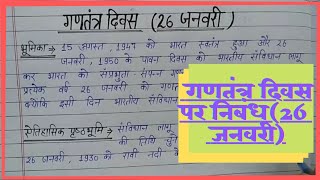 गणतंत्र दिवस (26 जनवरी)
भूमिका → 15 अगस्त, 1947 को भारत स्वतंत्र हुआ और 26
जनवरी, 1950 के पावन दिवस को भारतीय संविधान लागू
कर भारत को संप्रभुता संपन्न गण
प्रत्येक वर्ष 26 जनवरी को गणत
क्योंकि इसी दिन भारतीय संविधान
ऐतिहासिक पृष्ठभूमि → संविधान लागू
की तिथि चुन
26 जनवरी, 1930 को रावी नदी के
गणतंत्र दिवस
पर निबंध(26
जनवरी)